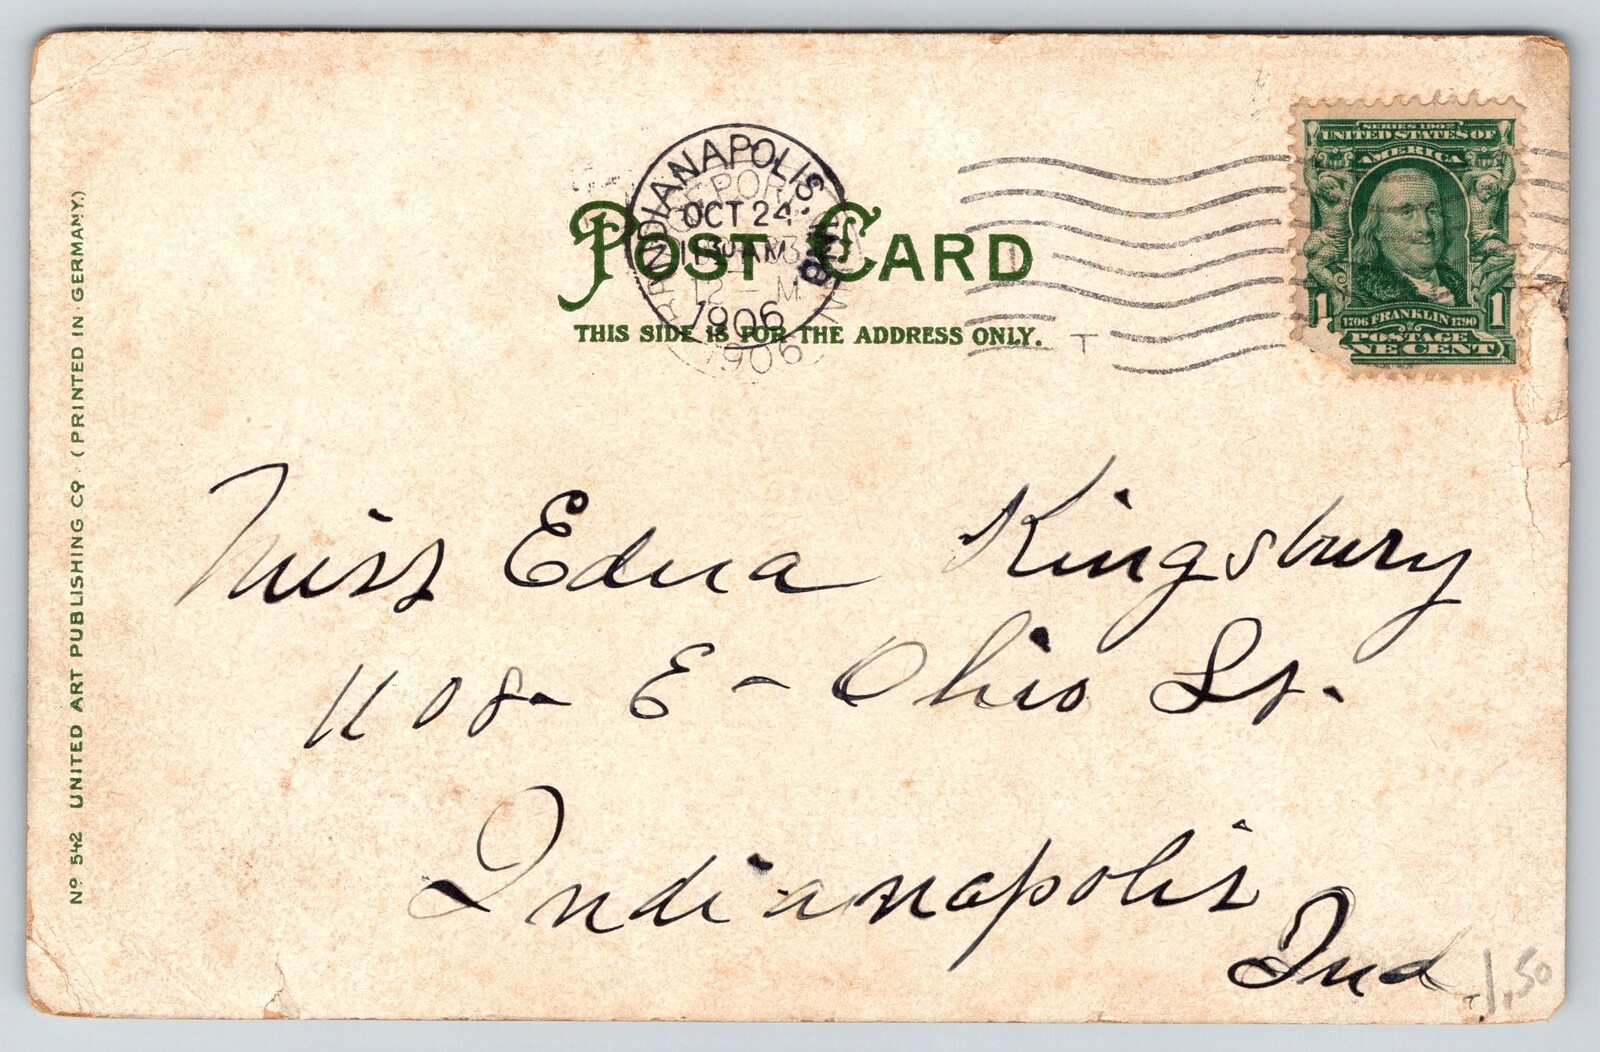 INDIANAPOLIS. IND
OCT 24
11 30 AM
1906
12 - M
1906
POST CARD
THIS SIDE IS FOR THE ADDRESS ONLY.
T
SERIES 1902
UNITED STATES OF
AMERICA
1 1
1706 FRANKLIN 1790
POSTAGE
NE CENT
Nº 542 UNITED ART PUBLISHING Cº. (PRINTED IN GERMANY.)
Miss Edna Kingsbury
1108- E- Ohio St.
Indianapolis
Ind
1.50